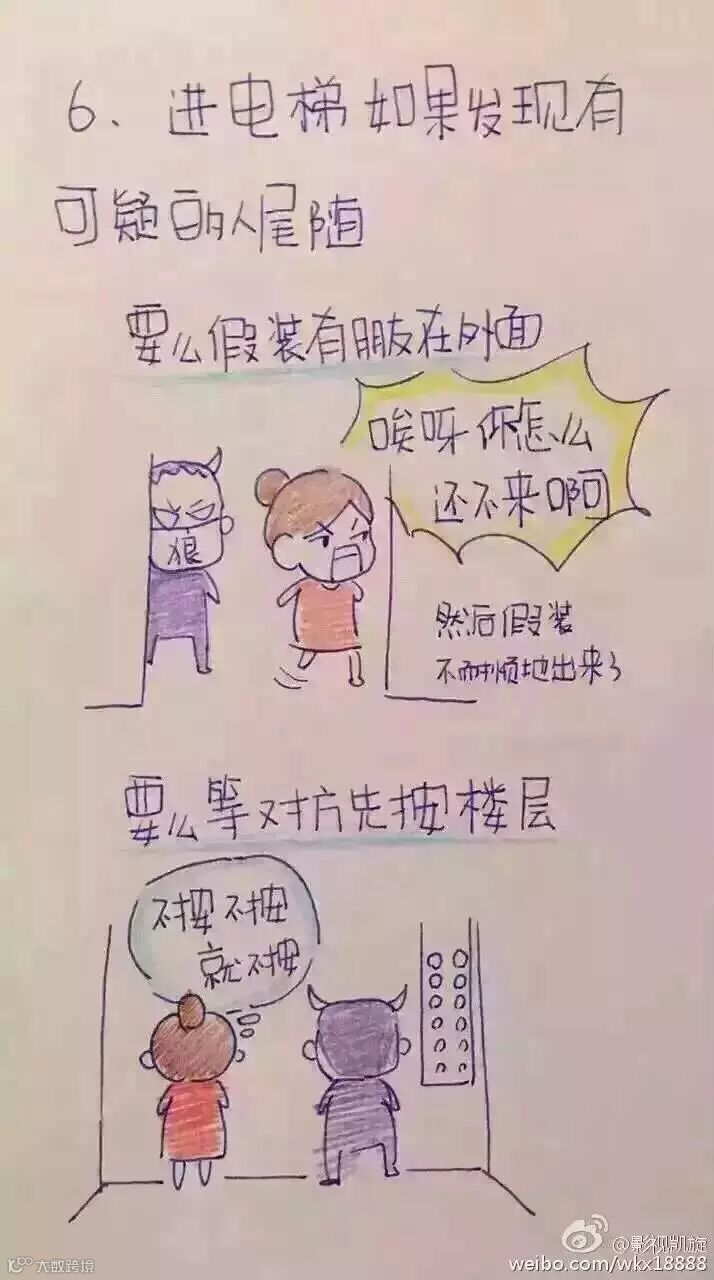 6、进电梯如果发现有
可疑的人尾随
要么假装有朋友在外面
唉呀你怎么
还不来啊
狼
然后假装
不耐烦地出来了
要么等对方先按楼层
不按不按
就不按
@影视凯旋
大数跨境
weibo.com/wkx18888